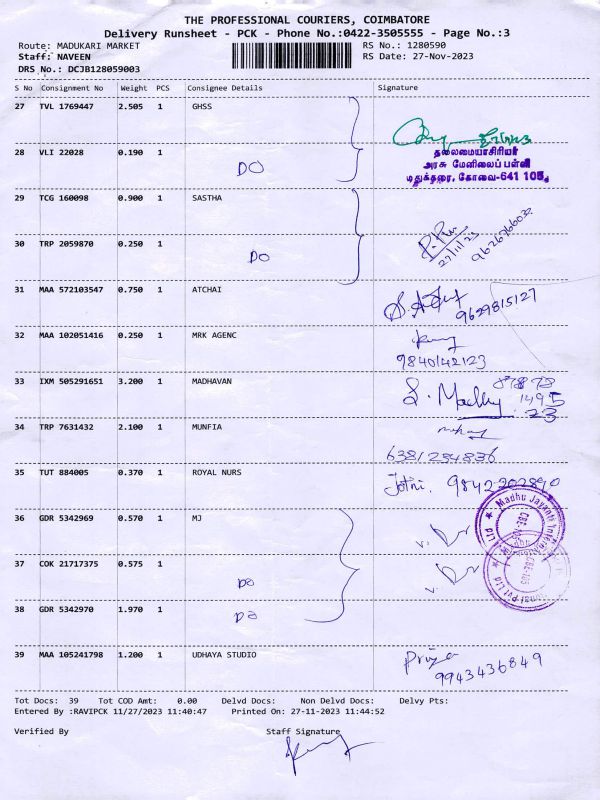 THE PROFESSIONAL COURIERS, COIMBATORE
Delivery Runsheet - PCK - Phone No.:0422-3505555 - Page No.:3
Route: MADUKARI MARKET RS No.: 1280590
Staff: NAVEEN RS Date: 27-Nov-2023
DRS No.: DCJB128059003
S No Consignment No Weight PCS Consignee Details Signature
27 TVL 1769447 2.505 1 GHSS
28 VLI 22028 0.190 1 DO
தலைமையாசிரியர்
அரசு மேனிலைப் பள்ளி
மதுக்கரை, கோவை-641 105.
29 TCG 160098 0.900 1 SASTHA
27/11/23 9626766032
30 TRP 2059870 0.250 1 DO
31 MAA 572103547 0.750 1 ATCHAI
9629815127
32 MAA 102051416 0.250 1 MRK AGENC
9840142123
33 IXM 505291651 3.200 1 MADHAVAN
S. Madhy
1495
23
34 TRP 7631432 2.100 1 MUNFIA
6381234836
35 TUT 884005 0.370 1 ROYAL NURS
Jothi. 9842202890
36 GDR 5342969 0.570 1 MJ
Madhu Jayanti
CBE-105
37 COK 21717375 0.575 1 DO
38 GDR 5342970 1.970 1 DO
39 MAA 105241798 1.200 1 UDHAYA STUDIO
Priya
9943436849
Tot Docs: 39 Tot COD Amt: 0.00 Delvd Docs: Non Delvd Docs: Delvy Pts:
Entered By :RAVIPCK 11/27/2023 11:40:47 Printed On: 27-11-2023 11:44:52
Verified By Staff Signature